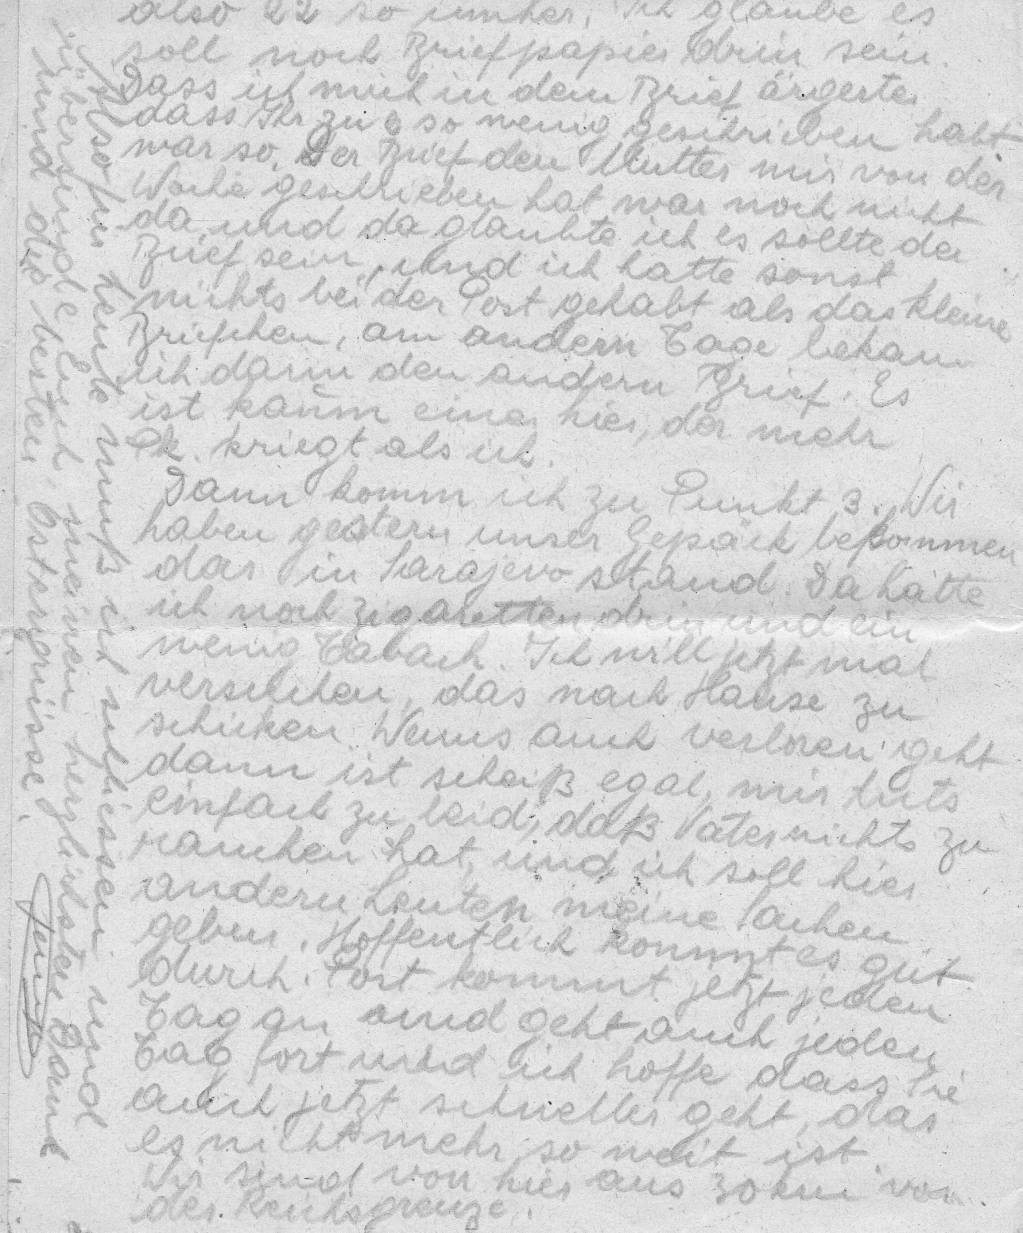 also 22 so umher. Ich glaube es
soll noch Briefpapier drin sein.
Dass ich mich in dem Brief ärgerte,
dass Ihr zu so wenig geschrieben habt
war so. Der Brief den Mutter mir von der
Woche geschrieben hat war noch nicht
da und da glaubte ich es sollte der
Brief sein, und ich hatte sonst
nichts bei der Post gehabt als das kleine
Briefchen, am andern Tage bekam
ich dann den andern Brief. Es
ist kaum einer hier, der mehr
Pk. kriegt als ich.
Dann komm ich zu Punkt 3. Wir
haben gestern unser Gepäck bekommen
das in Sarajevo stand. Da hatte
ich noch Zigaretten drin und ein
wenig Tabach. Ich will jetzt mal
versuchen, das nach Hause zu
schicken. Wenns auch verloren geht
dann ist scheiß egal, mir tuts
einfach zu leid, daß Vater nichts zu
rauchen hat, und ich soll hier
andern Leuten meine Sachen
geben. Hoffentlich kommt es gut
durch. Post kommt jetzt jeden
Tag an und geht auch jeden
Tag fort und ich hoffe dass sie
auch jetzt schneller geht, das
es nicht mehr so weit ist.
Wir sind von hier aus 30 km von
der Reichsgrenze.
Also für heute muß ich schliessen und
übersende Euch meinen herzlichsten Dank
und die besten Ostergrüsse.